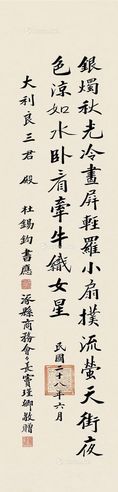 銀燭秋光冷畫屏輕羅小扇撲流螢天街夜
色涼如水卧看牽牛織女星
民國二十八年六月
大利良三君殿
杜錫鈞書應
涿縣商務會會長賈瑾卿敬贈